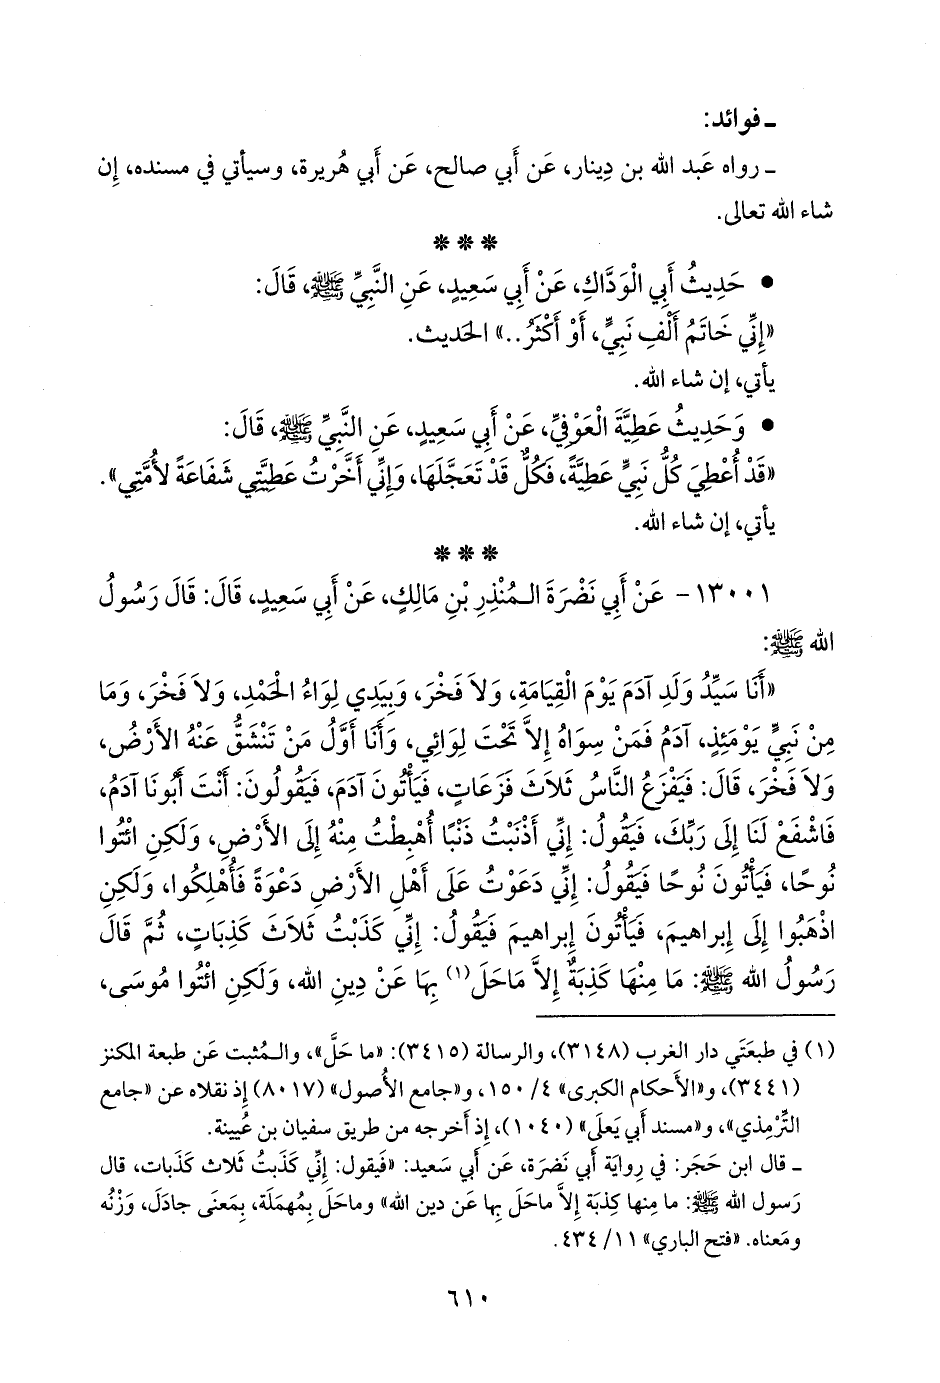 ـ فوائد:
ـ رواه عَبد الله بن دِينار، عَن أَبي صالح، عَن أَبي هُريرة، وسيأتي في مسنده، إِن
شاء الله تعالى.
* * *
• حَدِيثُ أَبِي الْوَدَّاكِ، عَنْ أَبِي سَعِيدٍ، عَنِ النَّبِيِّ ﷺ، قَالَ:
«إِنِّي خَاتَمُ أَلْفِ نَبِيٍّ، أَوْ أَكْثَرُ..» الحَديث.
يأتي، إن شاء الله.
• وَحَدِيثُ عَطِيَّةَ الْعَوْفِيِّ، عَنْ أَبِي سَعِيدٍ، عَنِ النَّبِيِّ ﷺ، قَالَ:
«قَدْ أُعْطِيَ كُلُّ نَبِيٍّ عَطِيَّةً، فَكُلٌّ قَدْ تَعَجَّلَهَا، وَإِنِّي أَخَّرْتُ عَطِيَّتِي شَفَاعَةً لأُمَّتِي».
يأتي، إن شاء الله.
* * *
١٣٠٠١- عَنْ أَبِي نَضْرَةَ الـمُنْذِرِ بْنِ مَالِكٍ، عَنْ أَبِي سَعِيدٍ، قَالَ: قَالَ رَسُولُ
الله ﷺ:
«أَنَا سَيِّدُ وَلَدِ آدَمَ يَوْمَ الْقِيَامَةِ، وَلاَ فَخْرَ، وَبِيَدِي لِوَاءُ الْحَمْدِ، وَلاَ فَخْرَ، وَمَا
مِنْ نَبِيٍّ يَوْمَئِذٍ، آدَمُ فَمَنْ سِوَاهُ إِلاَّ تَحْتَ لِوَائِي، وَأَنَا أَوَّلُ مَنْ تَنْشَقُّ عَنْهُ الأَرْضُ،
وَلاَ فَخْرَ، قَالَ: فَيَفْزَعُ النَّاسُ ثَلاَثَ فَزَعَاتٍ، فَيَأْتُونَ آدَمَ، فَيَقُولُونَ: أَنْتَ أَبُونَا آدَمُ،
فَاشْفَعْ لَنَا إِلَى رَبِّكَ، فَيَقُولُ: إِنِّي أَذْنَبْتُ ذَنْبًا أُهْبِطْتُ مِنْهُ إِلَى الأَرْضِ، وَلَكِنِ ائْتُوا
نُوحًا، فَيَأْتُونَ نُوحًا فَيَقُولُ: إِنِّي دَعَوْتُ عَلَى أَهْلِ الأَرْضِ دَعْوَةً فَأُهْلِكُوا، وَلَكِنِ
اذْهَبُوا إِلَى إِبراهيمَ، فَيَأْتُونَ إِبراهيمَ فَيَقُولُ: إِنِّي كَذَبْتُ ثَلاَثَ كَذِبَاتٍ، ثُمَّ قَالَ
رَسُولُ الله ﷺ: مَا مِنْهَا كَذِبَةٌ إِلاَّ مَاحَلَ (١) بِهَا عَنْ دِينِ الله، وَلَكِنِ ائْتُوا مُوسَى،
(١) في طبعَتَي دار الغرب (٣١٤٨)، والرسالة (٣٤١٥): «ما حَلَّ»، والـمُثبت عَن طبعة المكنز
(٣٤٤١)، و«الأحكام الكبرى» ٤/ ١٥٠، و«جامع الأُصول» (٨٠١٧) إذ نقلاه عن «جامع
التِّرْمِذي»، و«مسند أَبي يَعلَى» (١٠٤٠)، إِذ أَخرجه من طريق سفيان بن عُيينة.
ـ قال ابن حَجَر: في رِوايَة أَبي نَضرَة، عَن أَبي سَعيد: «فَيقول: إِنِّي كَذَبتُ ثَلاث كَذَبات، قال
رَسول الله ﷺ: ما مِنها كِذبَة إِلاَّ ماحَلَ بِها عَن دين الله» وماحَلَ بِمُهمَلَة، بِمَعنَى جادَلَ، وَزْنُه
ومَعناه. «فتح الباري» ١١/ ٤٣٤.
٦١٠